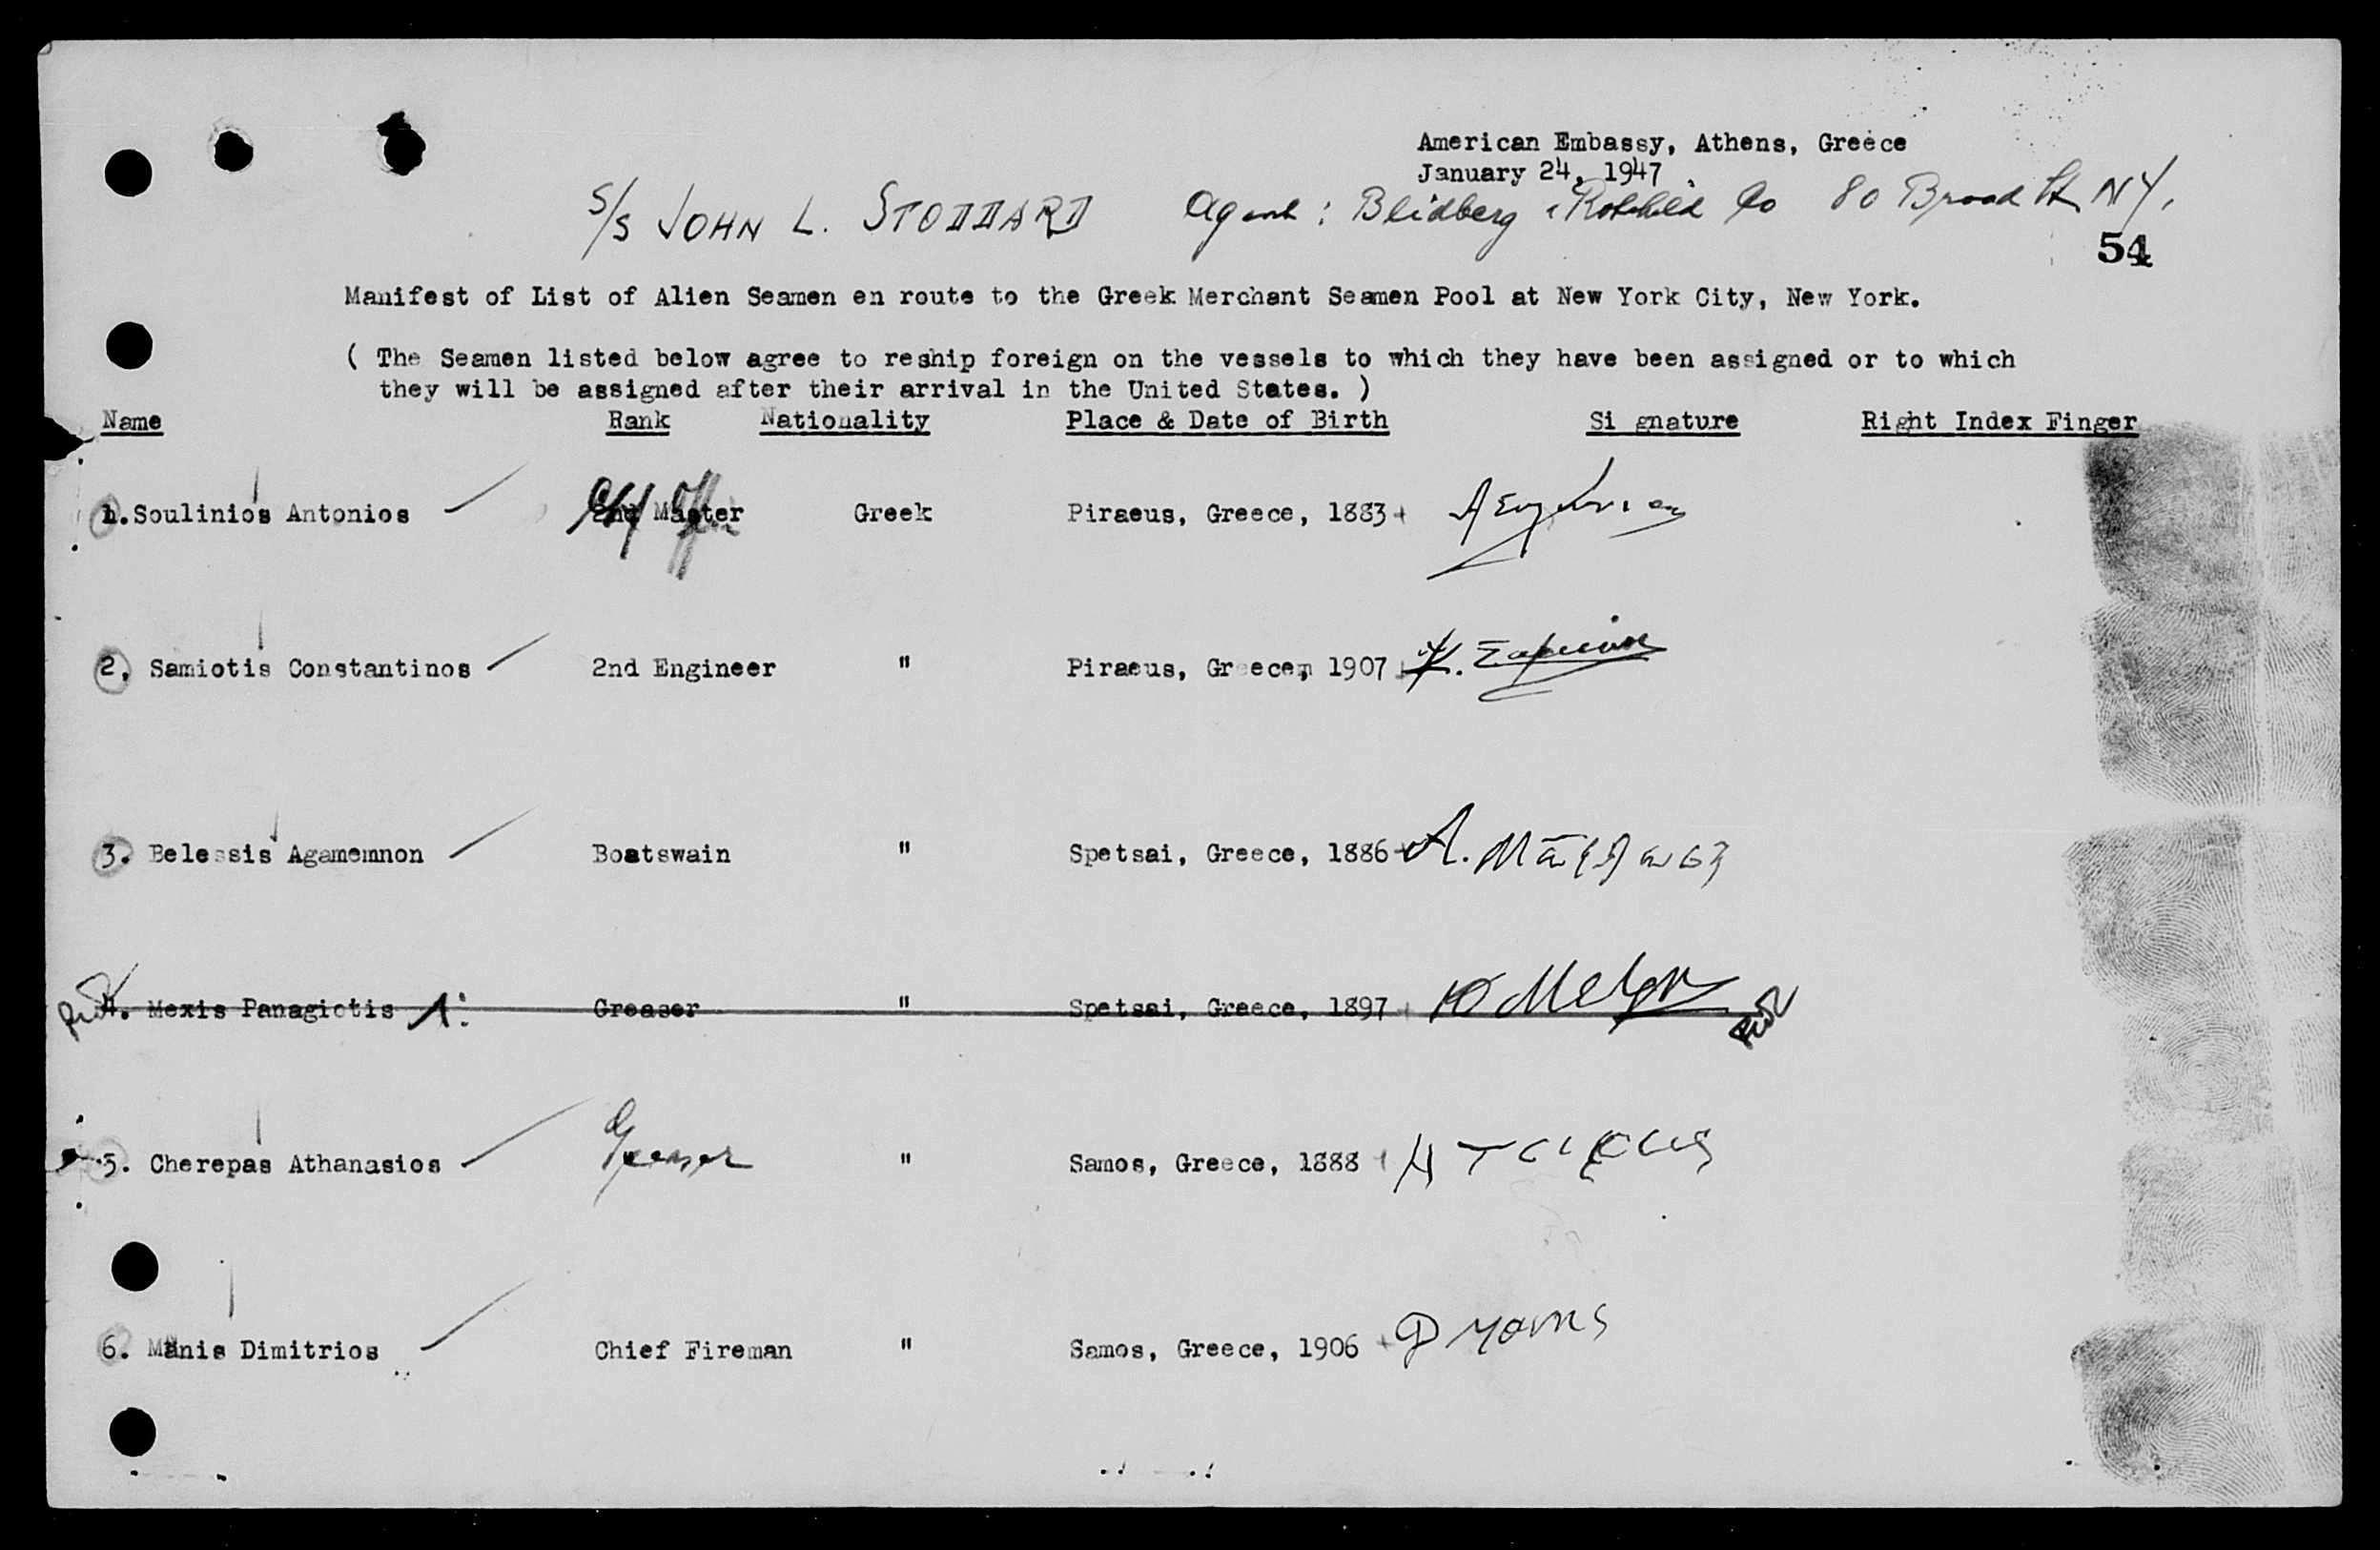 American Embassy, Athens, Greece
January 24, 1947
S/S JOHN L. STODDARD Agent: Blidberg Rothchild Co 80 Broad St NY.
54
Manifest of List of Alien Seamen en route to the Greek Merchant Seamen Pool at New York City, New York.
( The Seamen listed below agree to reship foreign on the vessels to which they have been assigned or to which
they will be assigned after their arrival in the United States. )
Name Rank Nationality Place & Date of Birth Si gnature Right Index Finger
1. Soulinios Antonios 2nd Master Greek Piraeus, Greece, 1883
2. Samiotis Constantinos 2nd Engineer " Piraeus, Greece, 1907
3. Belessis Agamemnon Boatswain " Spetsai, Greece, 1886
4. Mexis Panagiotis Greaser " Spetsai, Greece, 1897
5. Cherepas Athanasios Greaser " Samos, Greece, 1888
6. Manis Dimitrios Chief Fireman " Samos, Greece, 1906